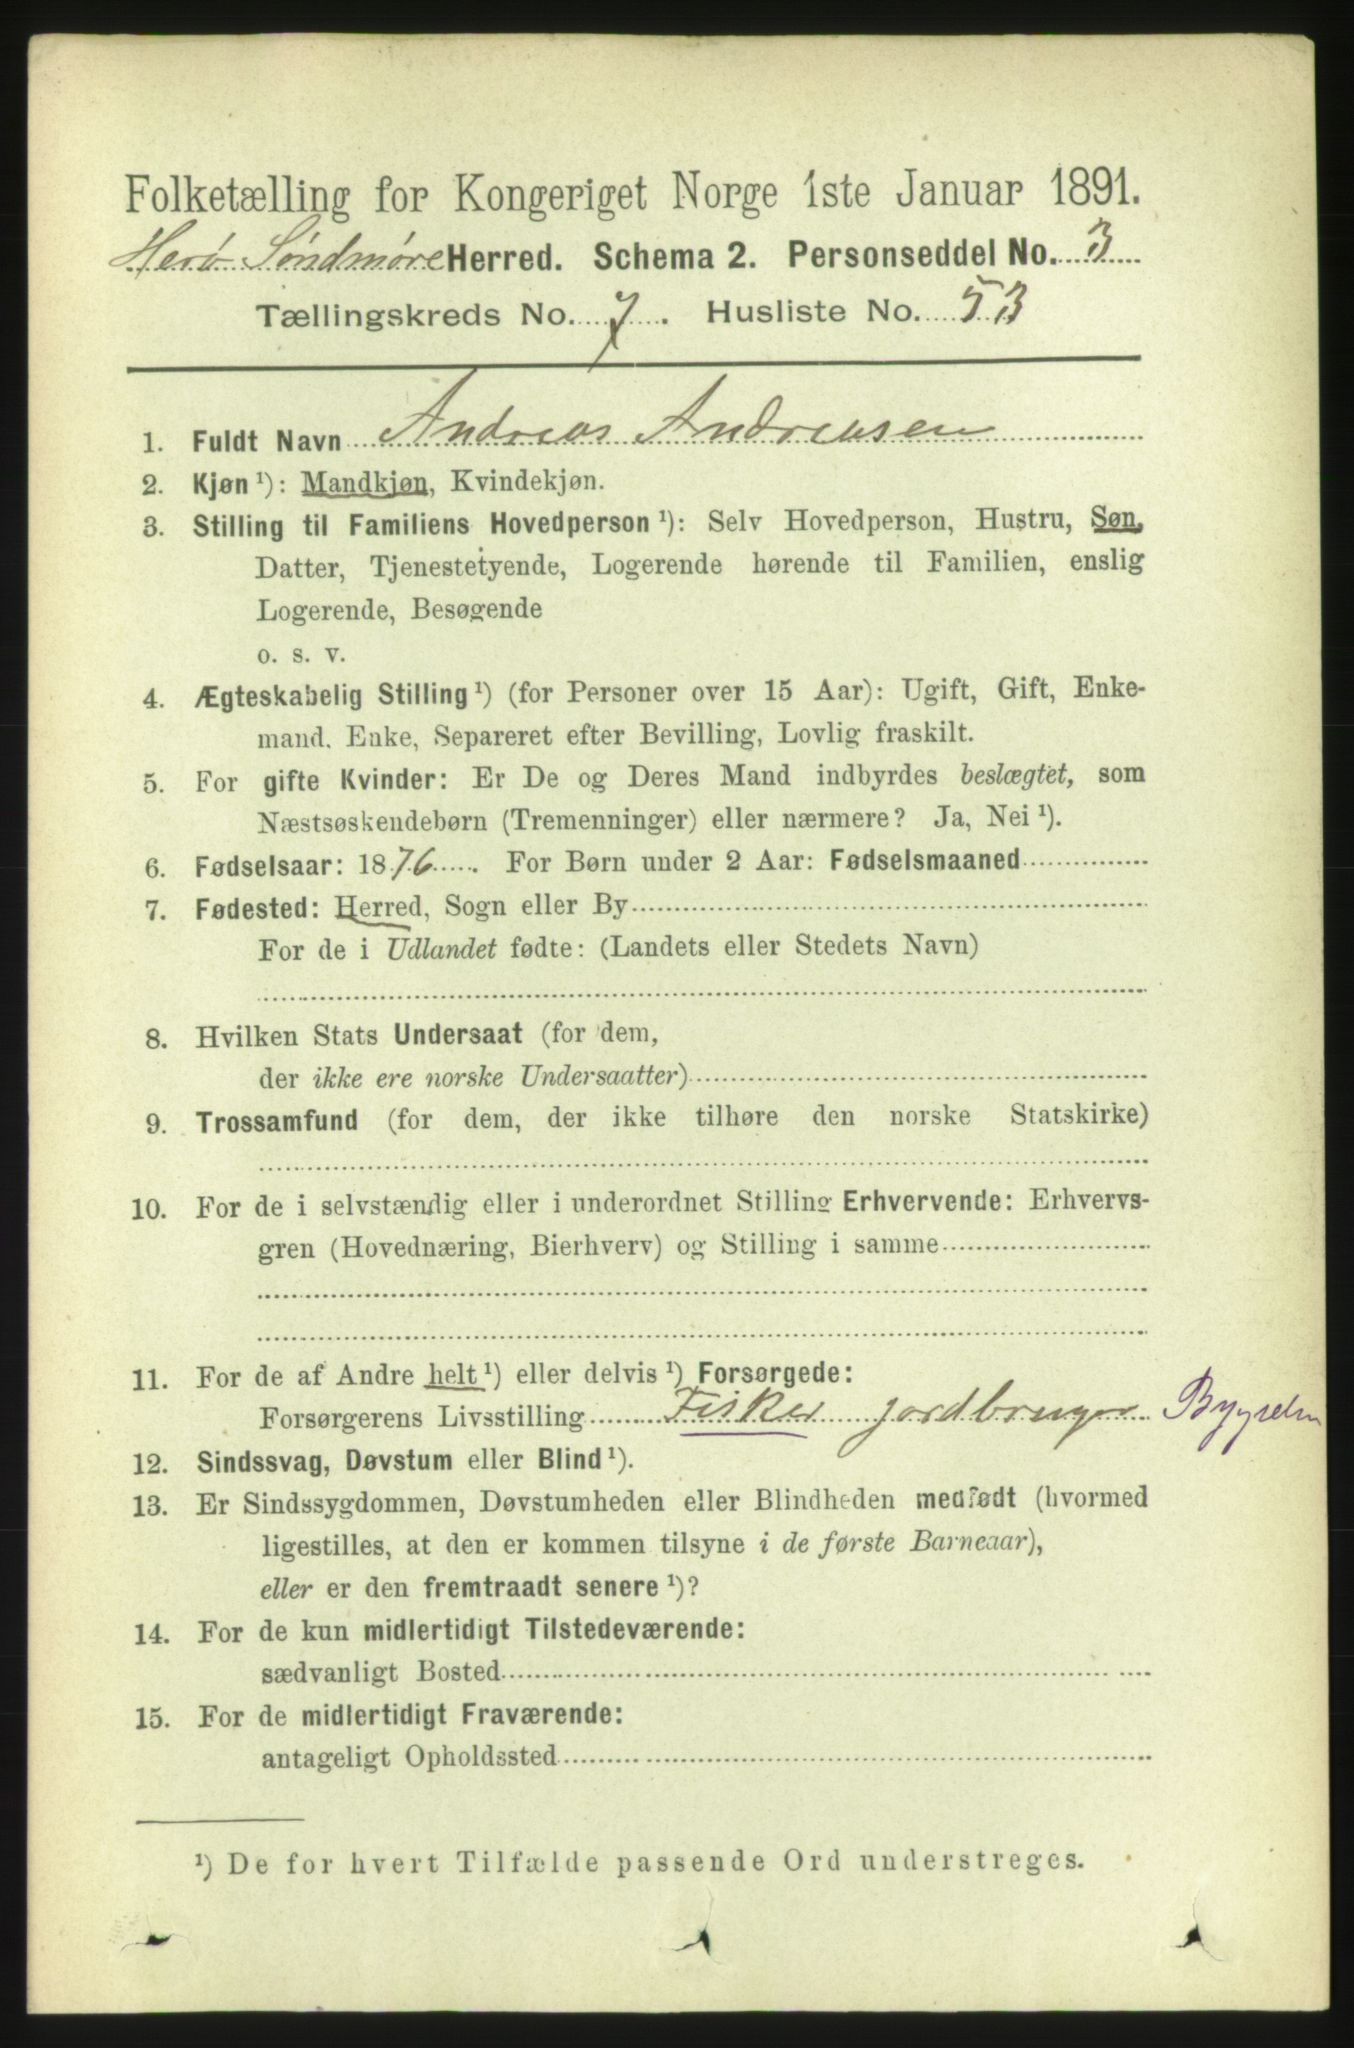 Folketælling for Kongeriget Norge 1ste Januar 1891.
Herø Søndmøre Herred. Schema 2. Personseddel No. 3
Tællingskreds No. 7. Husliste No. 53
1. Fuldt Navn Andreas Andreasen
2. Kjøn ¹): Mandkjøn, Kvindekjøn.
3. Stilling til Familiens Hovedperson ¹): Selv Hovedperson, Hustru, Søn,
Datter, Tjenestetyende, Logerende hørende til Familien, enslig
Logerende, Besøgende
o. s. v.
4. Ægteskabelig Stilling ¹) (for Personer over 15 Aar): Ugift, Gift, Enke-
mand, Enke, Separeret efter Bevilling, Lovlig fraskilt.
5. For gifte Kvinder: Er De og Deres Mand indbyrdes beslægtet, som
Næstsøskendebørn (Tremenninger) eller nærmere? Ja, Nei ¹).
6. Fødselsaar: 1876. For Børn under 2 Aar: Fødselsmaaned
7. Fødested: Herred, Sogn eller By
For de i Udlandet fødte: (Landets eller Stedets Navn)
8. Hvilken Stats Undersaat (for dem,
der ikke ere norske Undersaatter)
9. Trossamfund (for dem, der ikke tilhøre den norske Statskirke)
10. For de i selvstændig eller i underordnet Stilling Erhvervende: Erhvervs-
gren (Hovednæring, Bierhverv) og Stilling i samme
11. For de af Andre helt ¹) eller delvis ¹) Forsørgede:
Forsørgerens Livsstilling Fisker jordbruger
12. Sindssvag, Døvstum eller Blind ¹).
13. Er Sindssygdommen, Døvstumheden eller Blindheden medfødt (hvormed
ligestilles, at den er kommen tilsyne i de første Barneaar),
eller er den fremtraadt senere ¹)?
14. For de kun midlertidigt Tilstedeværende:
sædvanligt Bosted
15. For de midlertidigt Fraværende:
antageligt Opholdssted
¹) De for hvert Tilfælde passende Ord understreges.